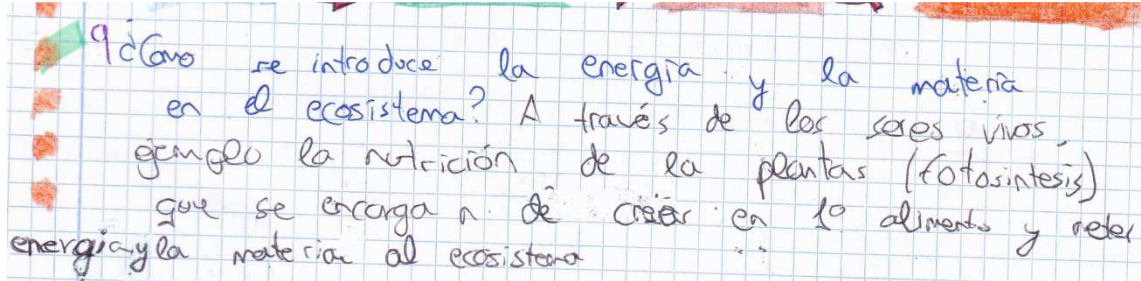 9 ¿Como se introduce la energía y la materia
en el ecosistema? A través de los seres vivos,
ejemplo la nutrición de la plantas (fotosintesis)
que se encarga n de crear en 1º alimento y meter
energía y la materia al ecosistema